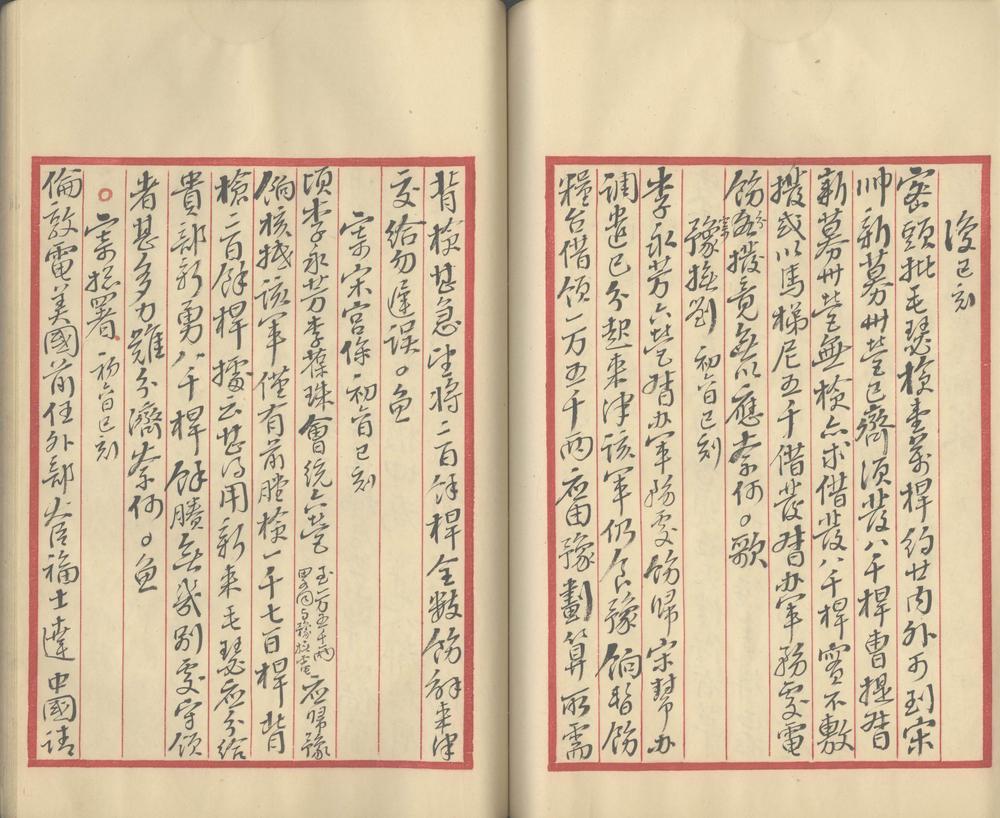 復 巳刻
密頭批毛瑟槍壹萬桿約廿內外可到宋
帥新募卅營已齊須發八千桿曹提督
新募卅營無槍亦求借發八千桿實不敷
撥或以馬梯尼五千借發督办軍務處電
飭分撥竟無以應奈何。歌
寄豫撫劉 初六日巳刻
李永芳六營督办軍務處飭歸宋幫办
調遣已分起來津該軍仍食豫餉暫飭
糧台借領一万五千兩應由豫劃算所需
背槍甚急望將二百餘桿全數飭解來津
交給勿遲誤。魚
寄宋宮保 初六日巳刻
頃李永芳李葆珠會統六營至一万五千兩 應歸豫
餉核撥該軍僅有前膛槍一千七百桿背
槍二百餘桿據云甚得用新來毛瑟應分給
貴部新勇八千桿餘賸無幾別處守領
者甚多力難分濟奈何。魚
寄總署 初六日巳刻
倫敦電美國前任外部大臣福士達中國請